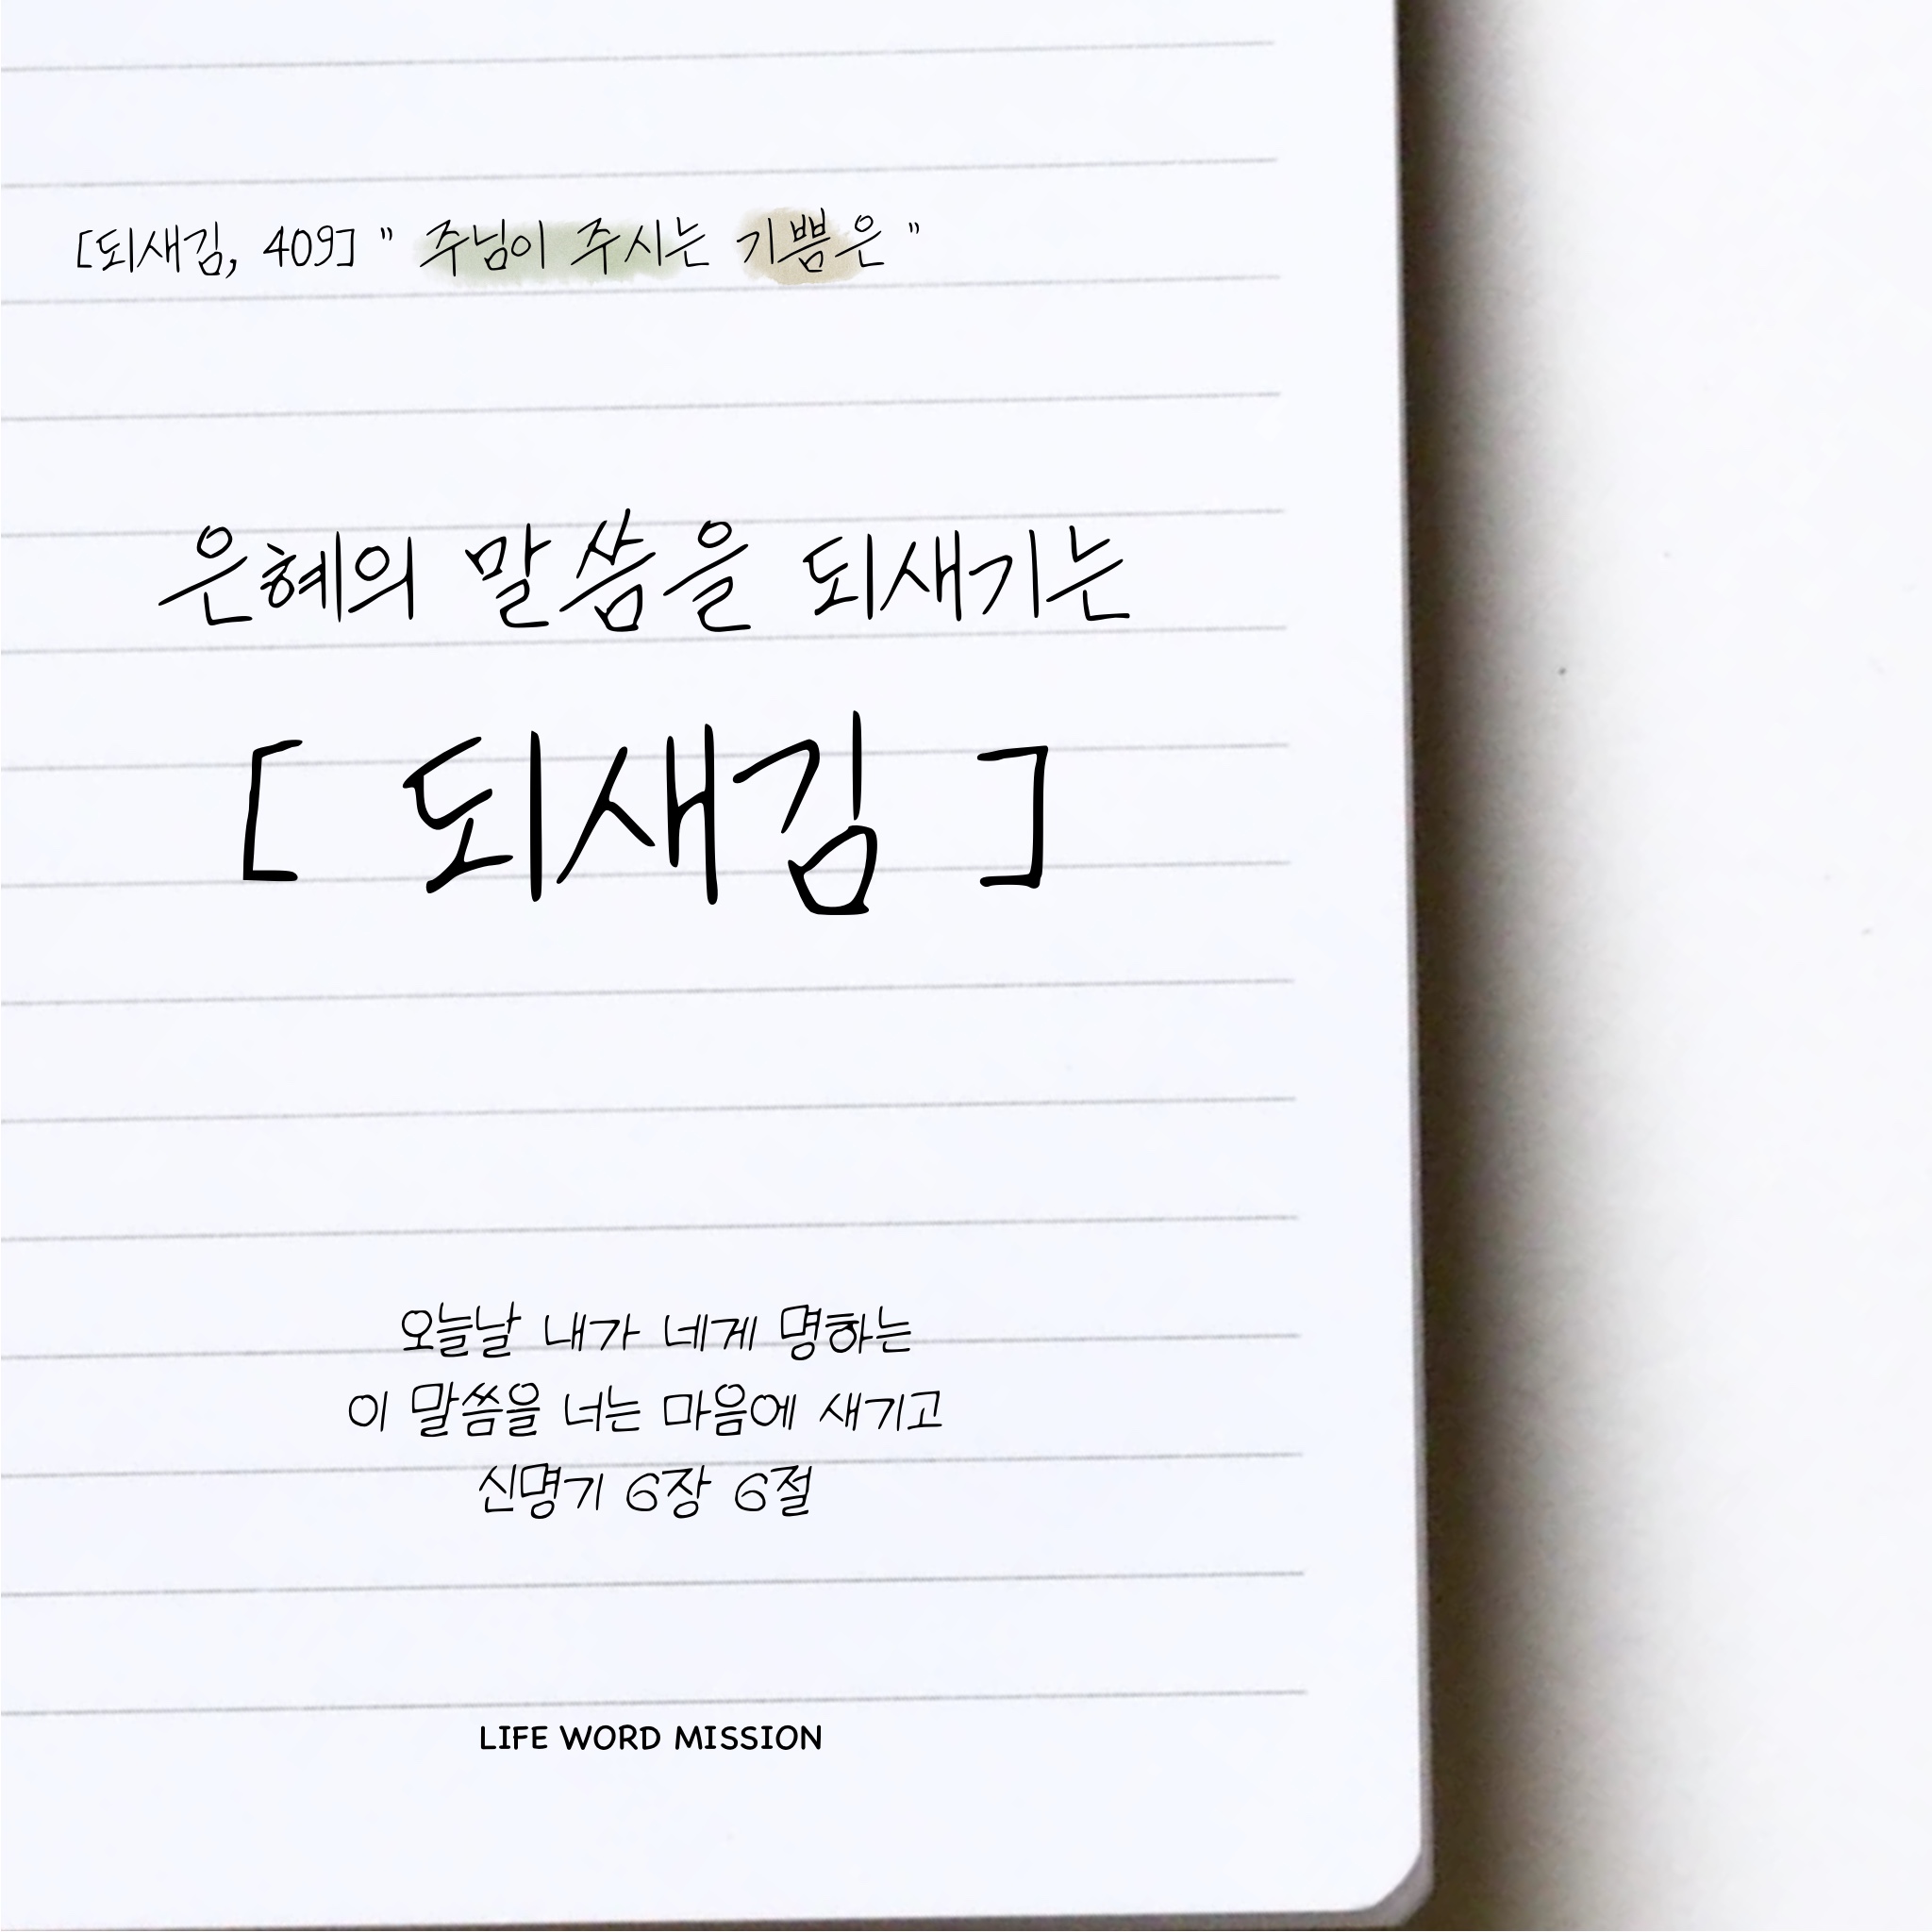 [되새김, 409] " 주님이 주시는 기쁨은 "
은혜의 말씀을 되새기는
[ 되새김 ]
오늘날 내가 네게 명하는
이 말씀을 너는 마음에 새기고
신명기 6장 6절
LIFE WORD MISSION